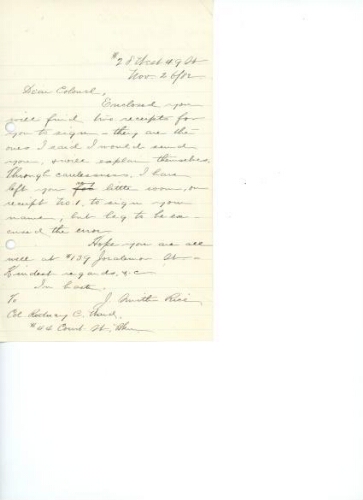 # 28 West 49 St
Nov. 26/82
Dear Colonel,
Enclosed you
will find his receipts for
you to sign - they are the
ones I said I would send
you, & will explain themselves.
Through carelessness, I have
left you little room, on
receipt No. 1, to sign your
name, but beg to be ex-
cused the error
Hope you are all
well at # 139 Joralemon St -
Kindest regards, &c
In haste
To J. Smith Rice
Col Rodney C. Ward.
# 44 Court St.